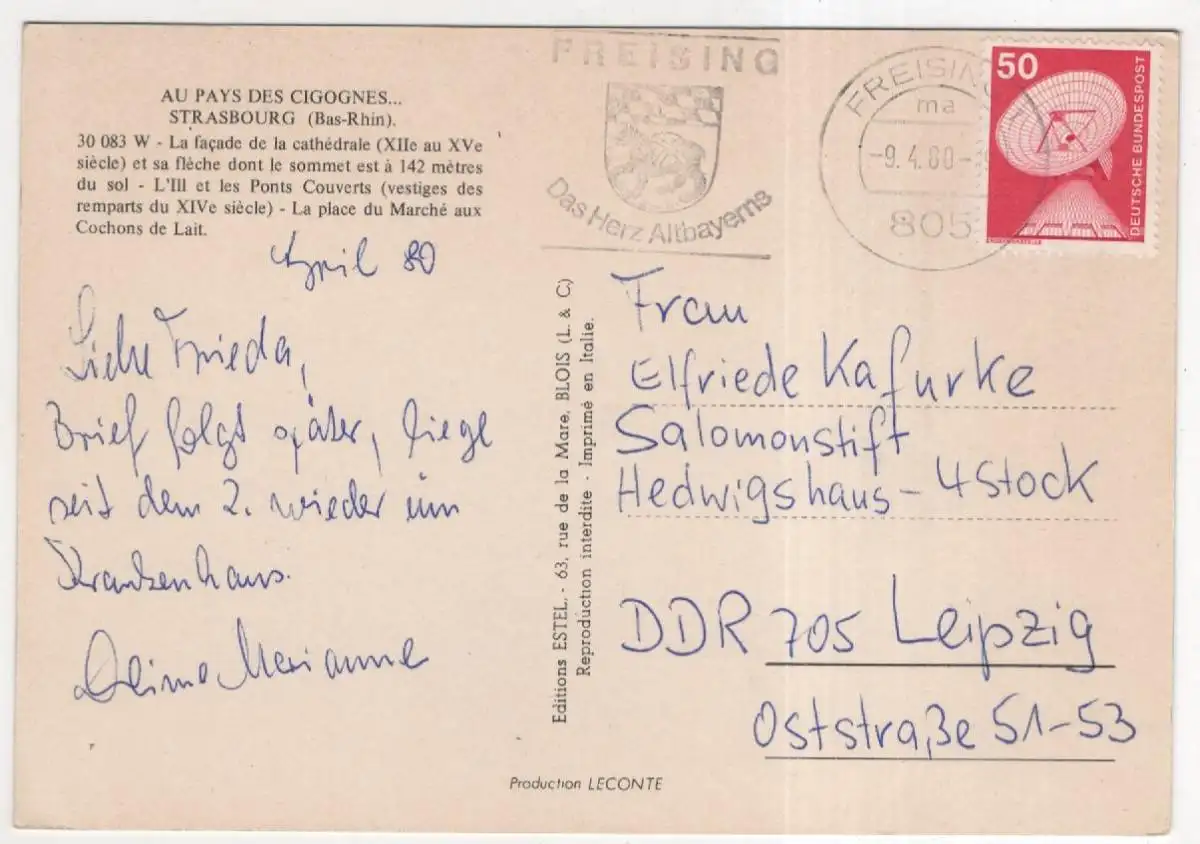 AU PAYS DES CIGOGNES...
STRASBOURG (Bas-Rhin).
30 083 W - La façade de la cathédrale (XIIe au XVe
siècle) et sa flèche dont le sommet est à 142 mètres
du sol - L'Ill et les Ponts Couverts (vestiges des
remparts du XIVe siècle) - La place du Marché aux
Cochons de Lait.
April 80
Liebe Frieda,
Brief folgt später, liege
seit dem 2. wieder im
Krankenhaus.
Deine Marianne
Editions ESTEL, - 63, rue de la Mare, BLOIS (L. & C.)
Reproduction interdite - Imprimé en Italie.
FREISING
Das Herz Altbayerns
FREISING
ma
-9.4.80-
805
50
DEUTSCHE BUNDESPOST
Frau
Elfriede Kafurke
Salomonstift
Hedwigshaus - 4 Stock
DDR 705 Leipzig
Oststraße 51-53
Production LECONTE